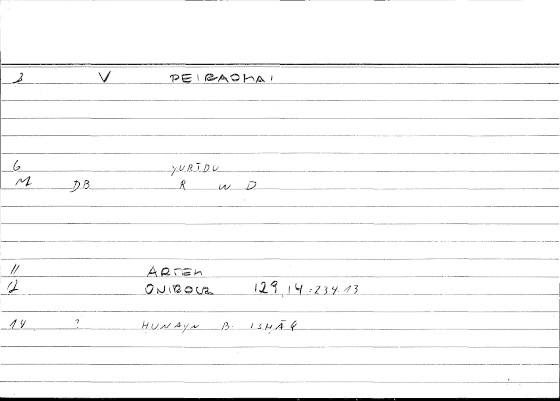 3 V PEIRAOMAI
6 YURĪDU
M DB R W D
11 ARTEM
12 ONIROCR 129,14 = 234.13
14 ? HUNAYN B. ISHĀQ